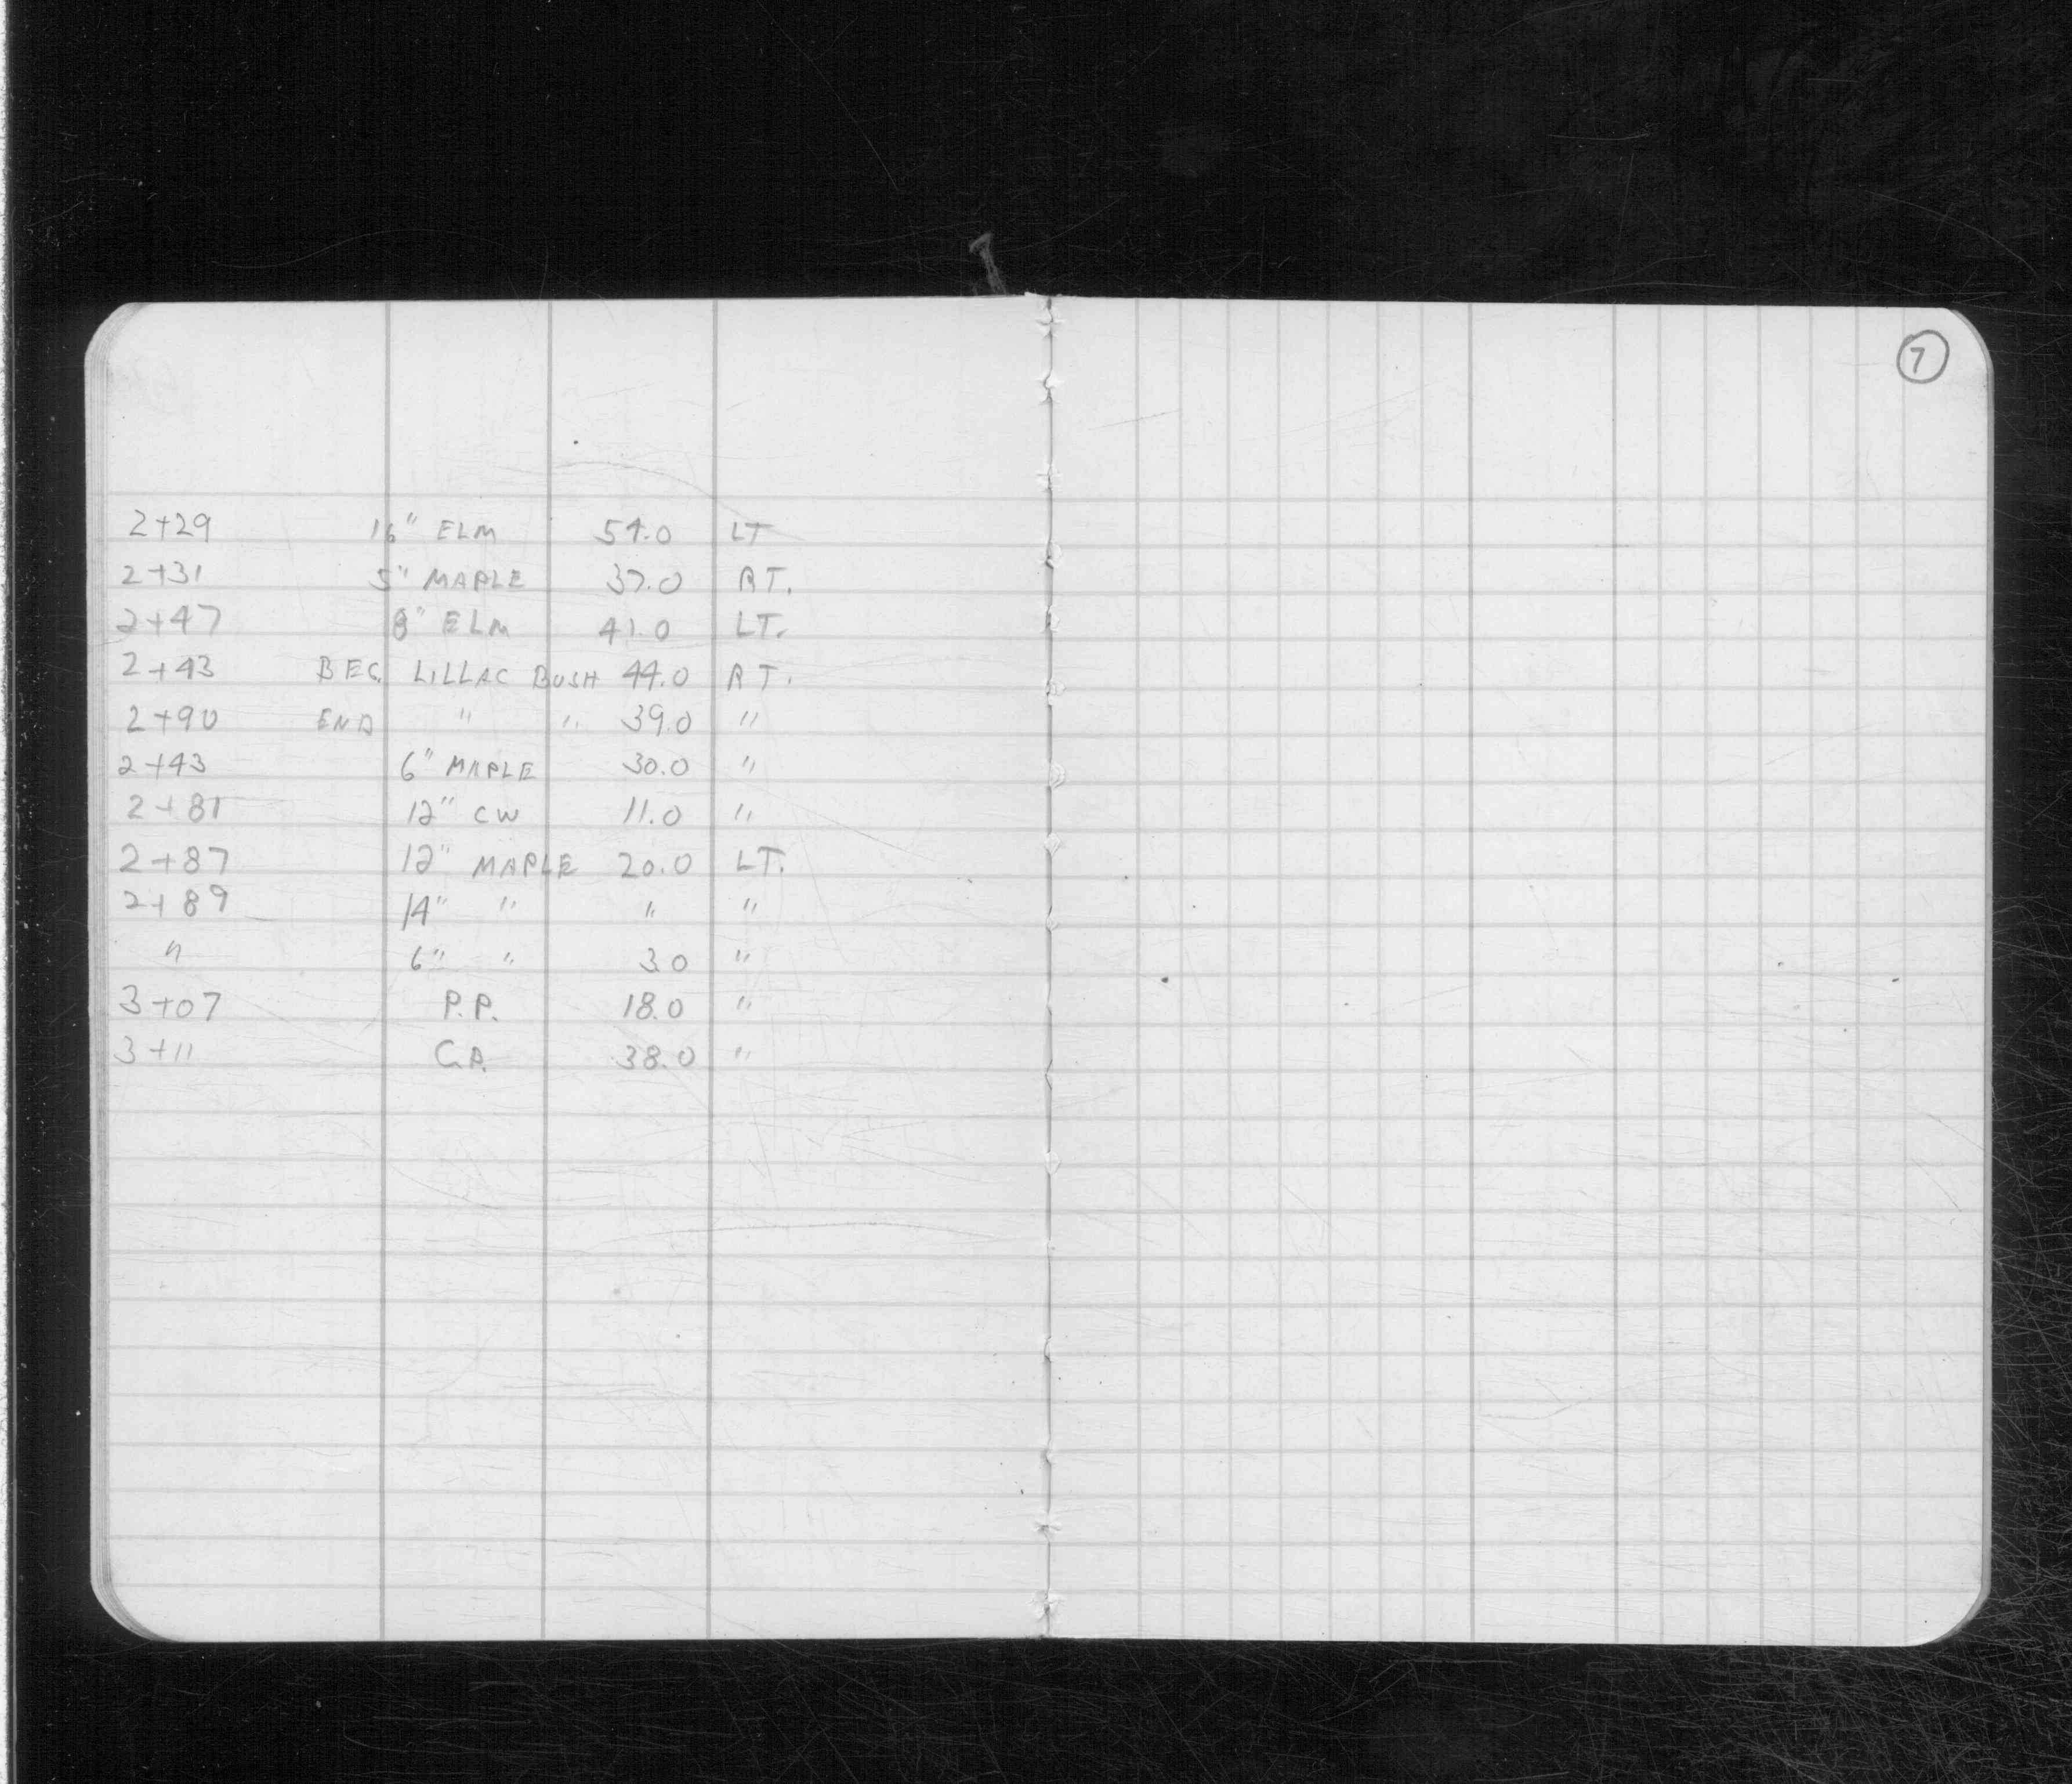 7
2+29 16" ELM 54.0 LT
2+31 5" MAPLE 37.0 RT.
2+47 8" ELM 41.0 LT.
2+43 BEG. LILLAC BUSH 44.0 RT.
2+90 END " " 39.0 "
2+43 6" MAPLE 30.0 "
2+81 12" CW 11.0 "
2+87 12" MAPLE 20.0 LT.
2+89 14" " " "
" 6" " 3.0 "
3+07 P.P. 18.0 "
3+11 38.0 "